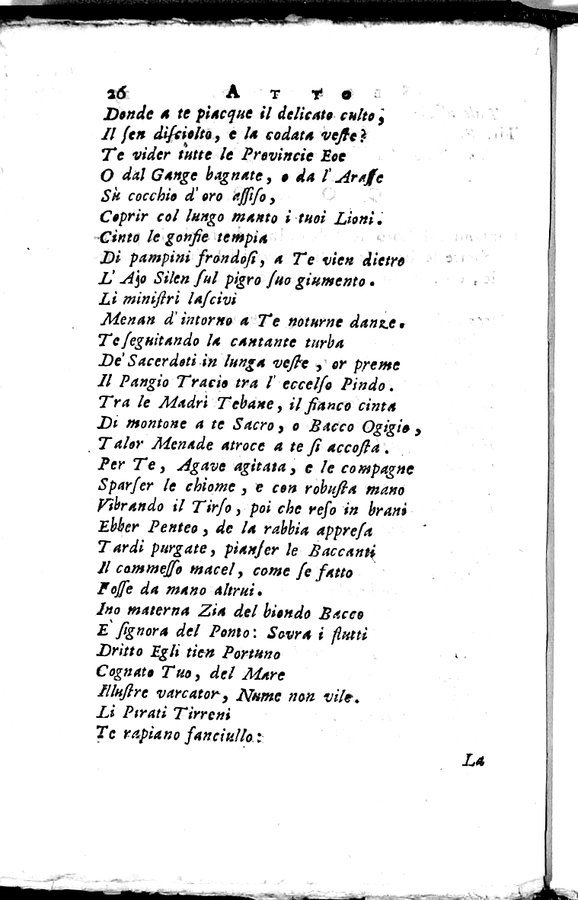 26 ATTO
Donde a te piacque il delicato culto,
Il ſen diſciolto, e la codata veſte?
Te vider tutte le Provincie Eoe
O dal Gange bagnate, o da l' Araſſe
Sù cocchio d'oro aſſiſo,
Coprir col lungo manto i tuoi Lioni.
Cinto le gonfie tempia
Di pampini frondoſi, a Te vien dietro
L' Ajo Silen ſul pigro ſuo giumento.
Li miniſtri laſcivi
Menan d'intorno a Te noturne danze.
Te ſeguitando la cantante turba
De' Sacerdoti in lunga veſte, or preme
Il Pangio Tracio tra l' eccelſo Pindo.
Tra le Madri Tebane, il fianco cinta
Di montone a te Sacro, o Bacco Ogigio,
Talor Menade atroce a te ſi accoſta.
Per Te, Agave agitata, e le compagne
Sparſer le chiome, e con robuſta mano
Vibrando il Tirſo, poi che reſo in brani
Ebber Penteo, de la rabbia appreſa
Tardi purgate, pianſer le Baccanti
Il commeſſo macel, come ſe fatto
Foſſe da mano altrui.
Ino materna Zia del biondo Bacco
E' ſignora del Ponto: Sovra i flutti
Dritto Egli tien Portuno
Cognato Tuo, del Mare
Illuſtre varcator, Nume non vile.
Li Pirati Tirreni
Te rapiano fanciullo:
La